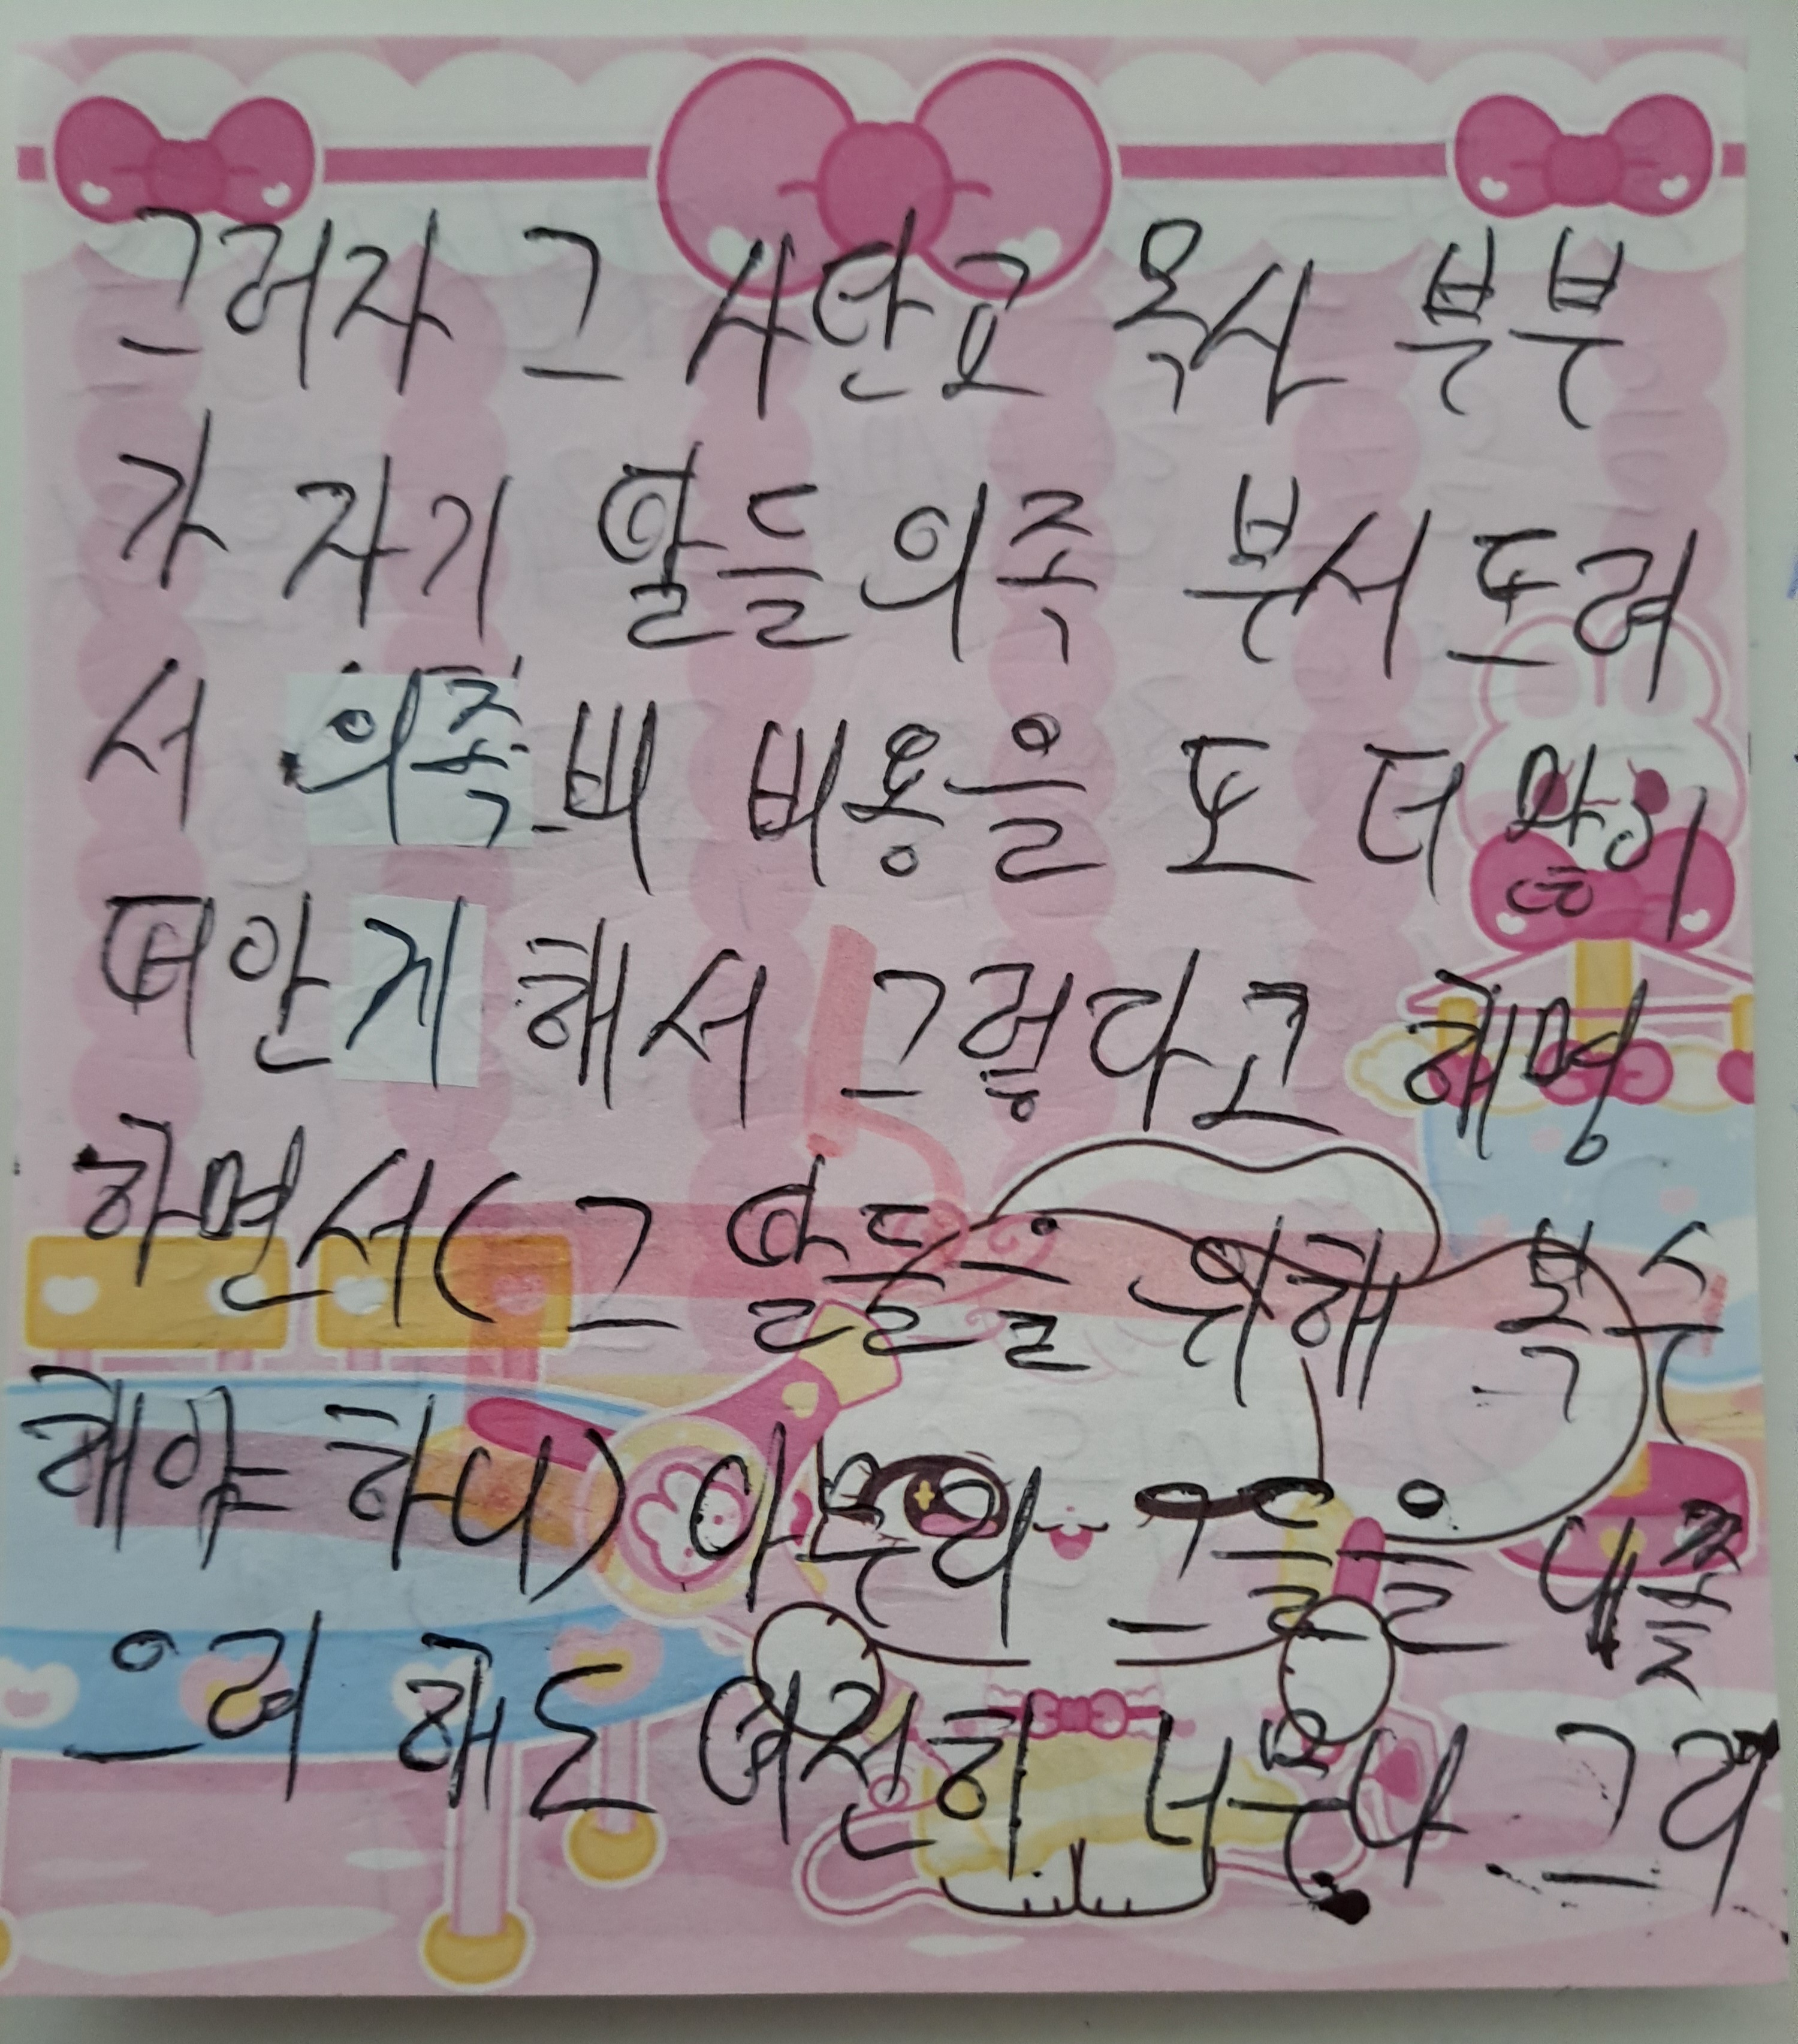 그러자 그 사탄교 목사 부부
가 자기 딸들 의족 부서 뜨려
서 의족비 비용을 또 더 많이
떠안게 해서 그렇다고 해명
하면서( 그 딸들을 위해 복수
해야 하니) 아무리 그들을 내쫓
으려 해도 여전히 너무나 그리